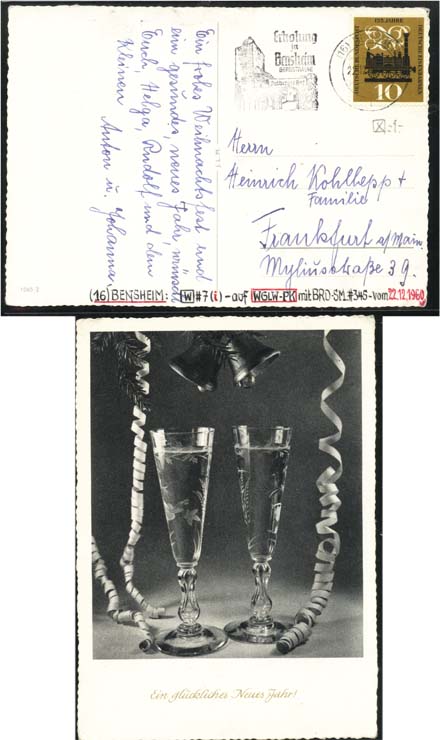 Ein frohes Weihnachtsfest und
ein gesundes, neues Jahr, wünscht
Euch, Helga, Rudolf und dem
Kleinen
Anton u. Johanna.
Erholung
in
Bensheim
BERGSTRASSE
(16)
125 JAHRE
DEUTSCHE EISENBAHNEN
DEUTSCHE BUNDESPOST
10
X -.1-
Herrn
Heinrich Kohlhepp +
Familie
Frankfurt a/Main
Myliusstraße 39.
(16) BENSHEIM: W #7 (i) - auf WGLW-PK mit BRD-SM.#345-vom 22.12.1960
Ein glückliches Neues Jahr!